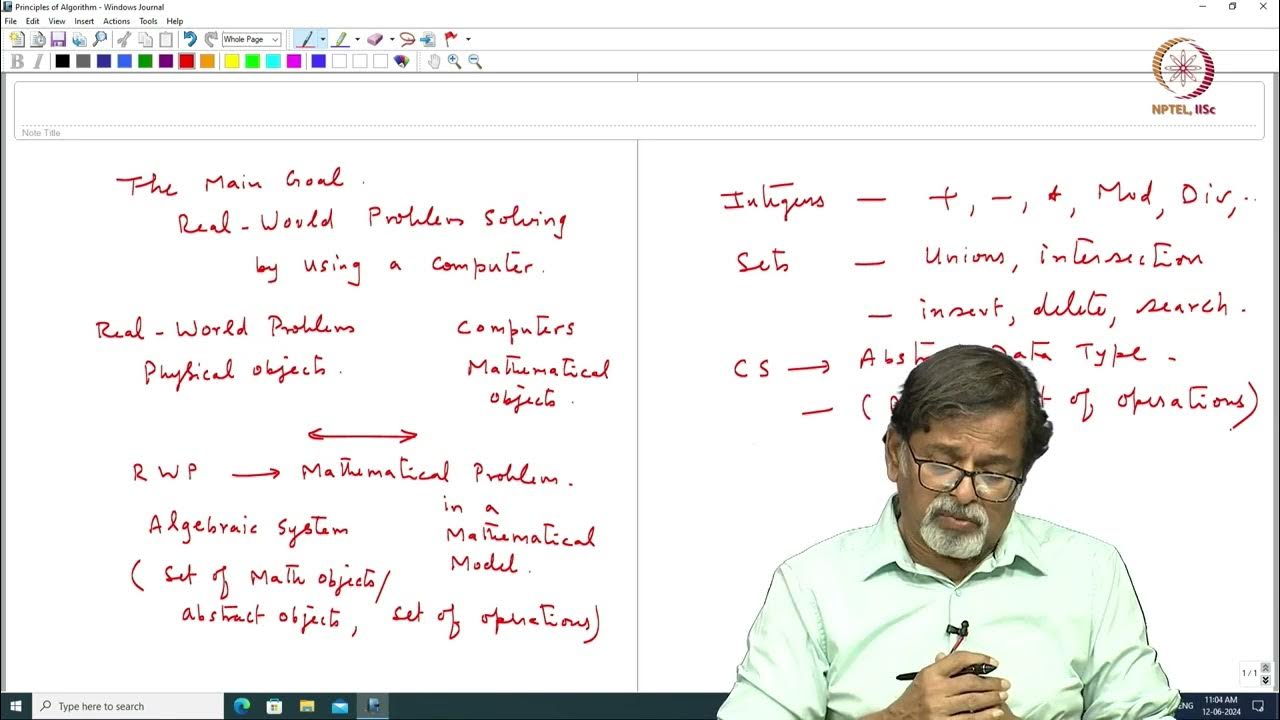 Principles of Algorithm - Windows Journal
File Edit View Insert Actions Tools Help
Whole Page
B I
NPTEL, IISc
Note Title
The Main Goal.
Real-World Problem Solving
by using a computer.
Real-World Problems Computers
Physical objects. Mathematical
objects.
RWP → Mathematical Problem.
in a
Mathematical
Model.
Algebraic System
( Set of Math objects/
abstract objects, set of operations)
Integers — +, -, *, Mod, Div, ..
Sets — Unions, intersection
— insert, delete, search.
CS → Data Type.
— ( of operations)
1 / 1
Type here to search
ENG 11:04 AM
12-06-2024